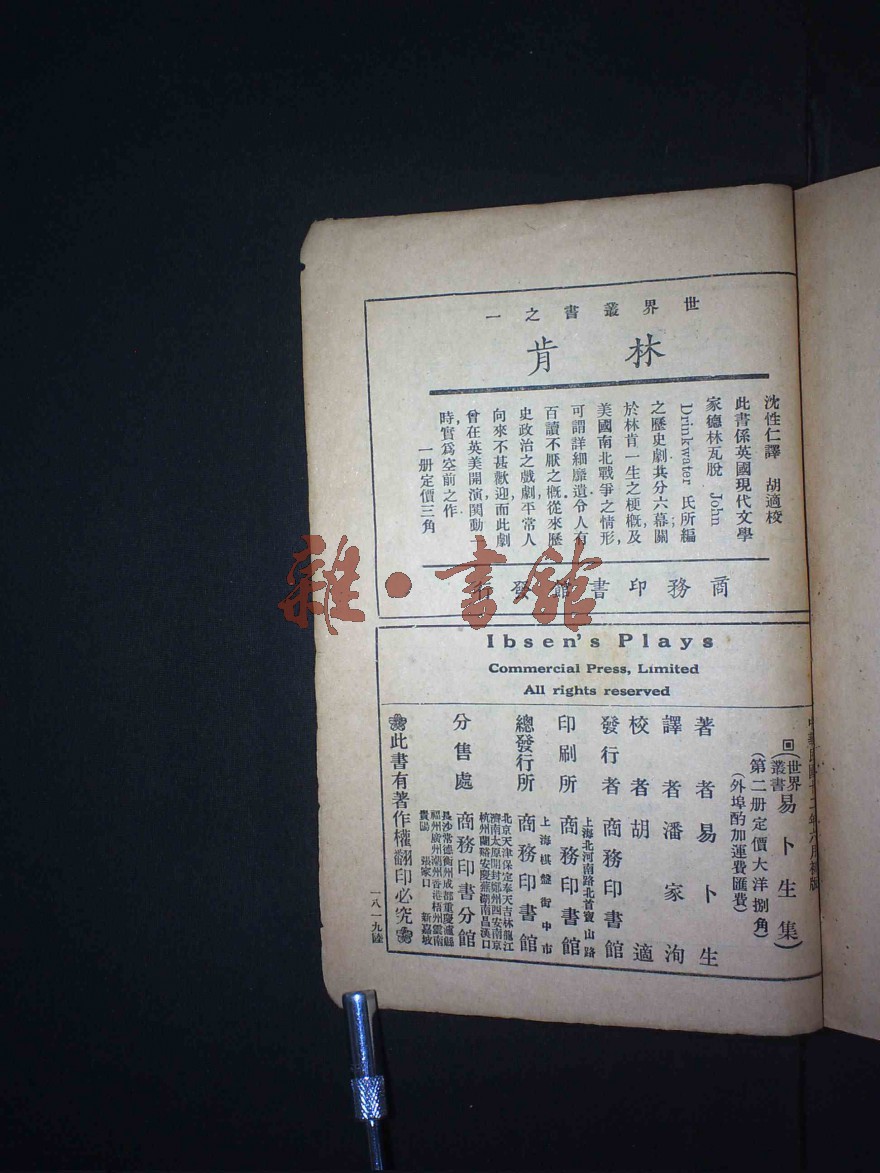 世界叢書之一
林肯
沈性仁譯 胡適校
此書係英國現代文學
家德林瓦脫 John
Drinkwater 氏所編
之歷史劇共分六幕關
於林肯一生之梗概及
美國南北戰爭之情形,
可謂詳細靡遺令人有
百讀不厭之概從來歷
史政治之戲劇平常人
向來不甚歡迎而此劇
曾在英美開演閧動一
時,實爲空前之作.
一册定價三角
商務印書館發行
Ibsen's Plays
Commercial Press, Limited
All rights reserved
中華民國十二年六月初版
(世界叢書 易卜生集)
(第二册定價大洋捌角)
(外埠酌加運費匯費)
著者 易卜生
譯者 潘家洵
校者 胡適
發行者 商務印書館
上海北河南路北首寶山路
印刷所 商務印書館
上海棋盤街中市
總發行所 商務印書館
北京天津保定奉天吉林龍江
濟南太原開封鄭州西安南京
杭州蘭谿安慶蕪湖南昌漢口
分售處 商務印書分館
長沙常德衡州成都重慶瀘縣
福州廣州潮州香港梧州雲南
貴陽 張家口 新嘉坡
此書有著作權翻印必究
一八一九陸
雜·書館